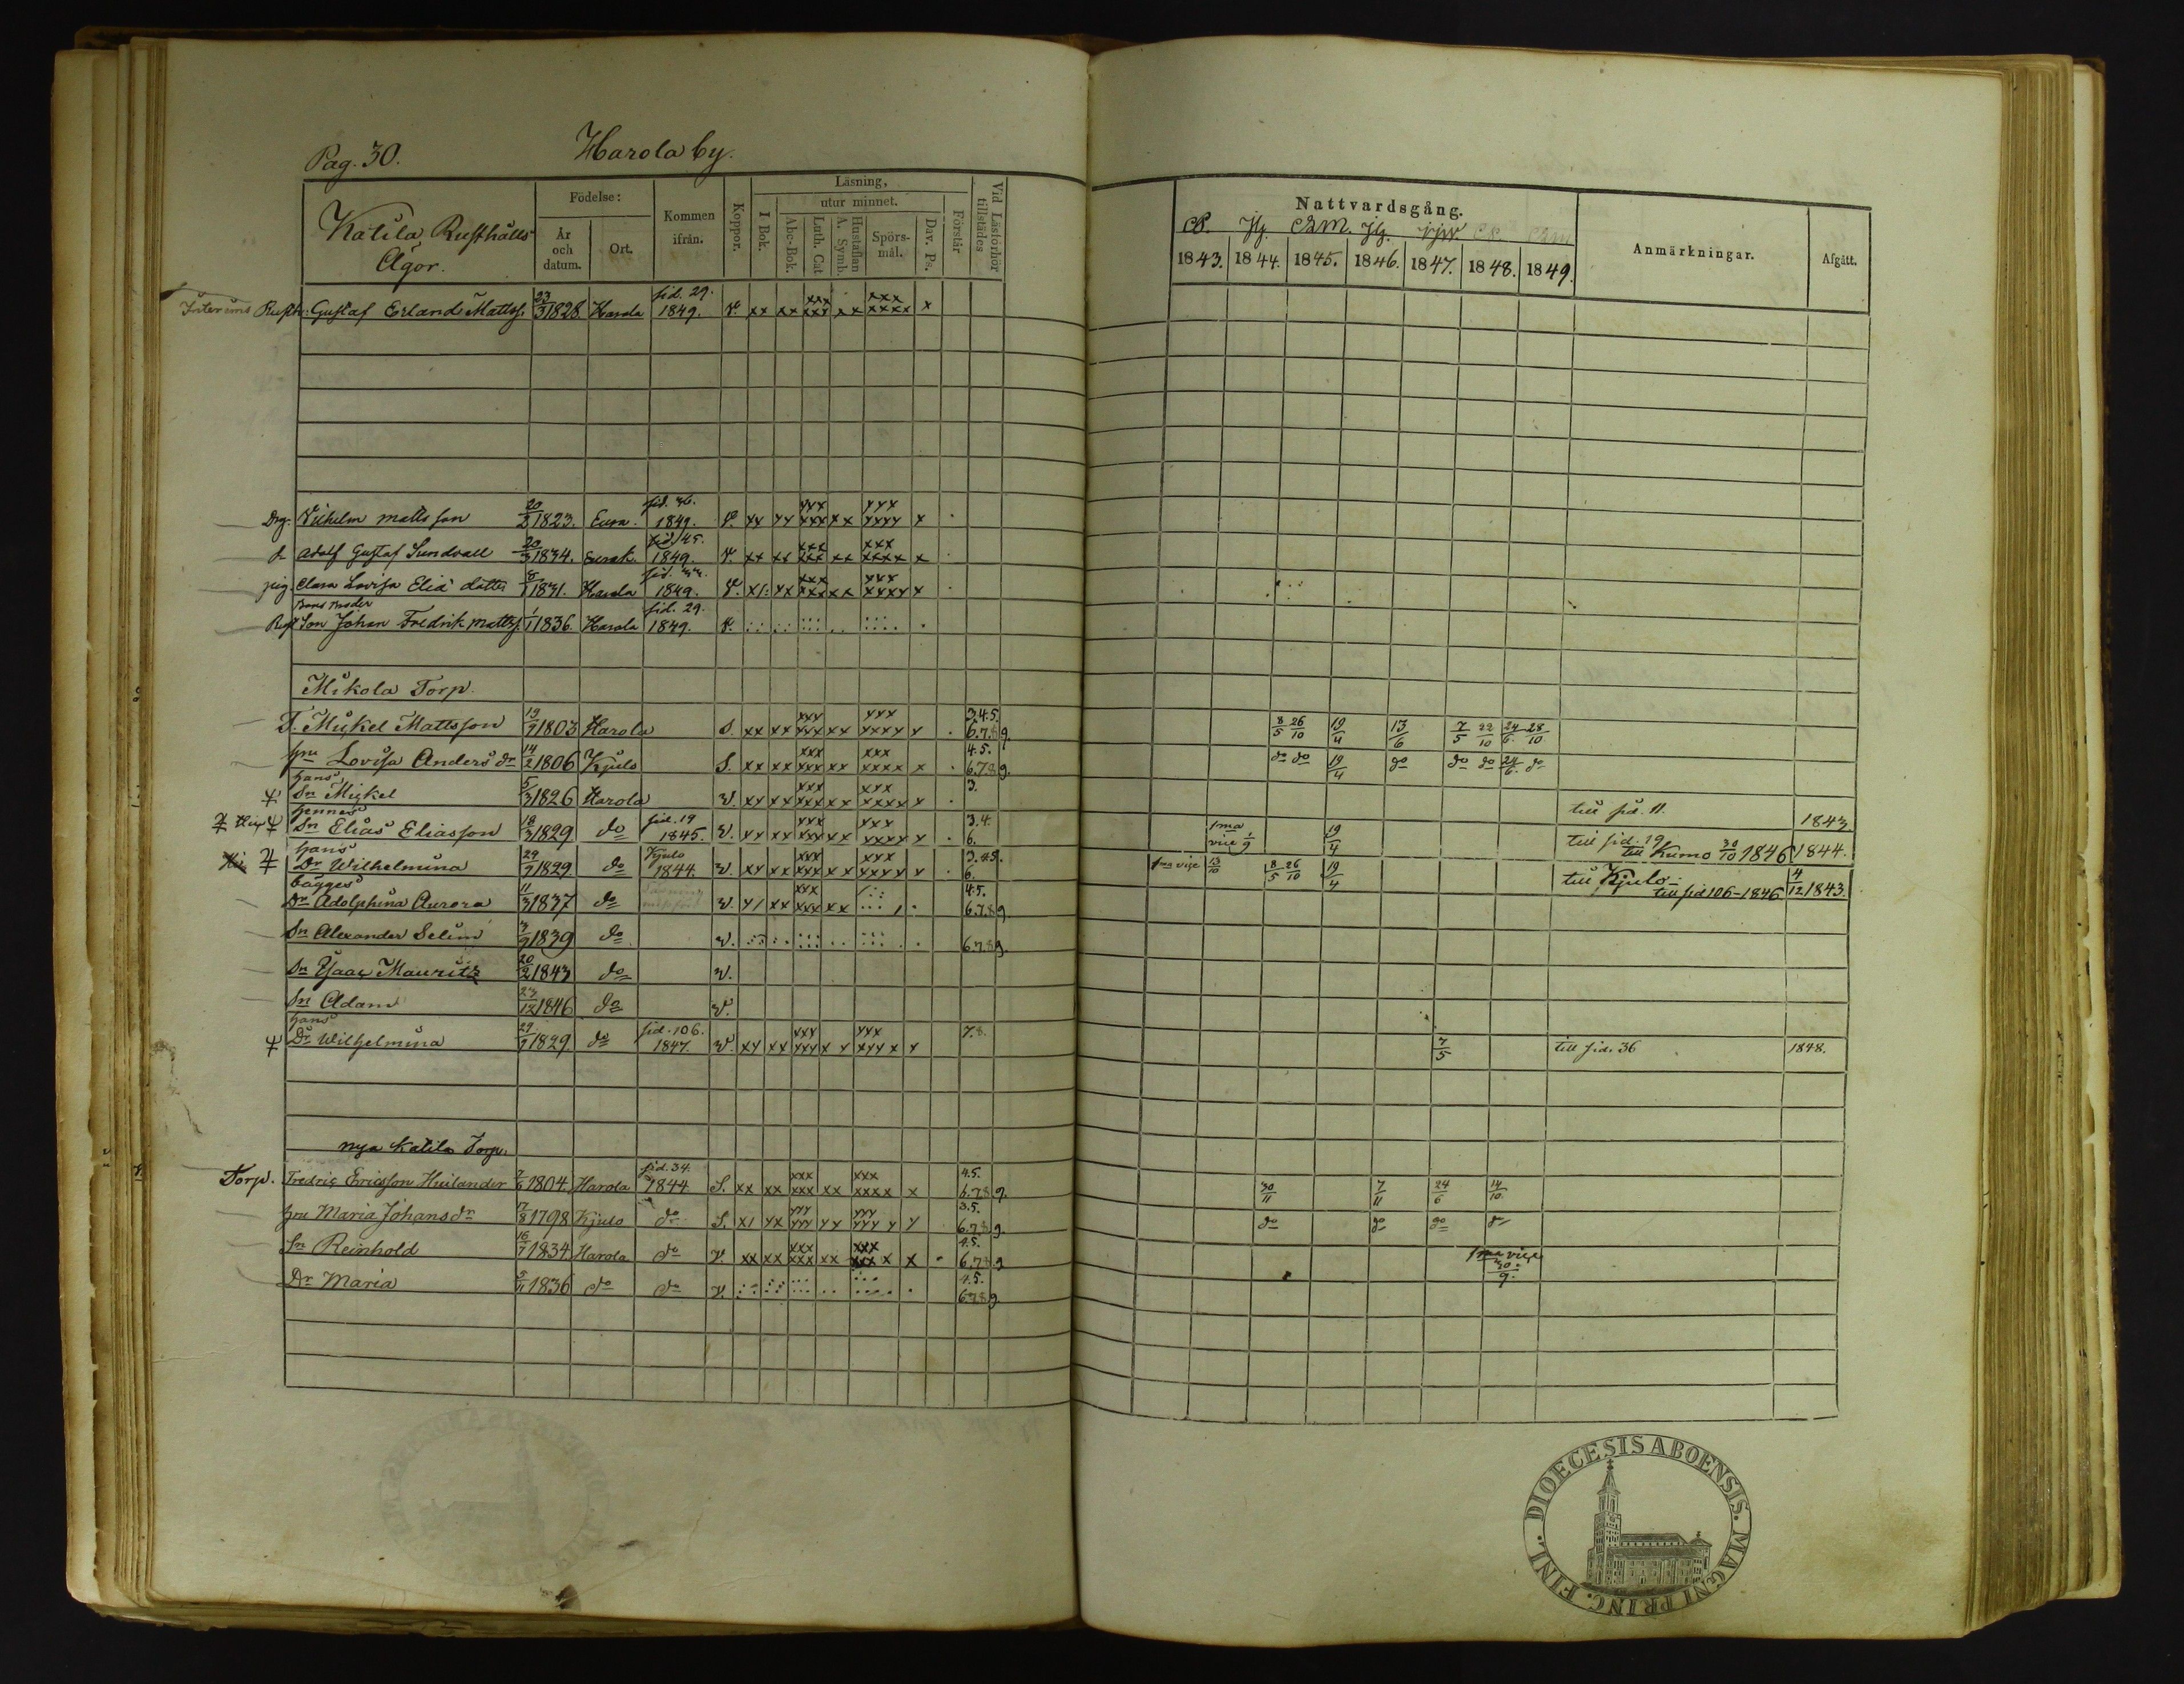 Pag. 30.
Harola by.
Katila Rusthålls Ägor.
Födelse:
År och datum.
Ort.
Kommen ifrån.
Koppor.
Läsning,
utur minnet.
I Bok.
Abc-Bok.
Luth. Cat.
Hustaflan A. Symb.
Spörs-mål.
Dav. Ps.
Förstår
Vid Läsförhör tillstädes
Nattvardsgång.
1843. 1844. 1845. 1846. 1847. 1848. 1849.
Anmärkningar.
Afgått.
Interims Rusth: Gustaf Erland Mattss. 23/3 1828. Harola sid. 29. 1849. V. xx xx xxx xxx xx xxx xxxx x
Drg. Vilhelm Matts son 20/3 1823. Eura. sid. 36. 1849. V. xx xx xxx xxx xx xxx xxxx x
d Adolf Gustaf Sundvall 20/3 1834. Eurak. sid. 45. 1849. V. xx xx xxx xxx xx xxx xxxx x
pig. Clara Lovisa Eliæ dotter 1831. Harola 1849. V.
Bons broder
Rust Son Johan Fredrik Mattss. 1/1 1836. Harola sid. 29. 1849. V.
Mikola Torp.
T. Mickel Mattsson 19/9 1803 Harola S. xx xx xxx xxx xx xxx xxxx x 3.4.5. 6.7.8.9. 8/5 26/10 19/4 13/6 7/5 22/10 24/6 28/10
hu Lovisa Anders dr 14/2 1806 Kjulo S. xx xx xxx xxx xx xxx xxxx x 4.5. 6.7.8.9. do do 19/4 do do do 24/6. do
hans
Sn Mickel 5/3 1826 Harola V. xx xx xxx xxx xx xxx xxxx x 3. till sid. 11. 1843.
hennes
Sn Elias Eliasson 18/3 1829 do sid. 19 1845. V. xx xx xxx xxx xx xxx xxxx x 3.4. 6. 1ma vice 1/9 19/4 till sid. 19 till Kumo 30/10 1846 1844.
hans
Dr Wilhelmina 29/9 1829 do Kjulo 1844 V. xx xx xxx xxx xx xxx xxxx x 3.4.5. 6. 1ma vice 13/10 8/5 26/10 19/4 till Kjulo - till sid 106 - 1846 4/12 1843.
bägges
Dr Adolphina Aurora 11/3 1837 do V. 4.5. 6.7.8.9.
Sn Alexander Selim 3/9 1839 do V. 6.7.8.9.
Sn Isaac Mauritz 20/2 1843 do V.
Sn Adam 23/12 1846 do V.
hans
Dr Wilhelmina 29/9 1829 do sid. 106. 1847. V. xx xx xxx xxx x x xxx xxx x x 7.8. 7/5 till sid. 36 1848.
nya Katila Torp.
Torp. Fredric Ericsson Huilander 7/6 1804 Harola sid. 34. 1844 S. xx xx xxx xxx xx xxx xxxx x 4.5. 6.7.8.9. 30/11 7/11 24/6 14/10.
hu Maria Johans dr 17/8 1798 Kjulo do S. 3.5. 6.7.8.9. do do do do
Sn Reinhold 16/7 1834 Harola do V. xx xx xxx xxx xx xxx xxx x x 4.5. 6.7.8.9 1ma vice 30/9.
Dr Maria 5/11 1836 do do V. 4.5. 6.7.8.9
DIOECESIS ABOENSIS. MAGNI PRINC. FINL.